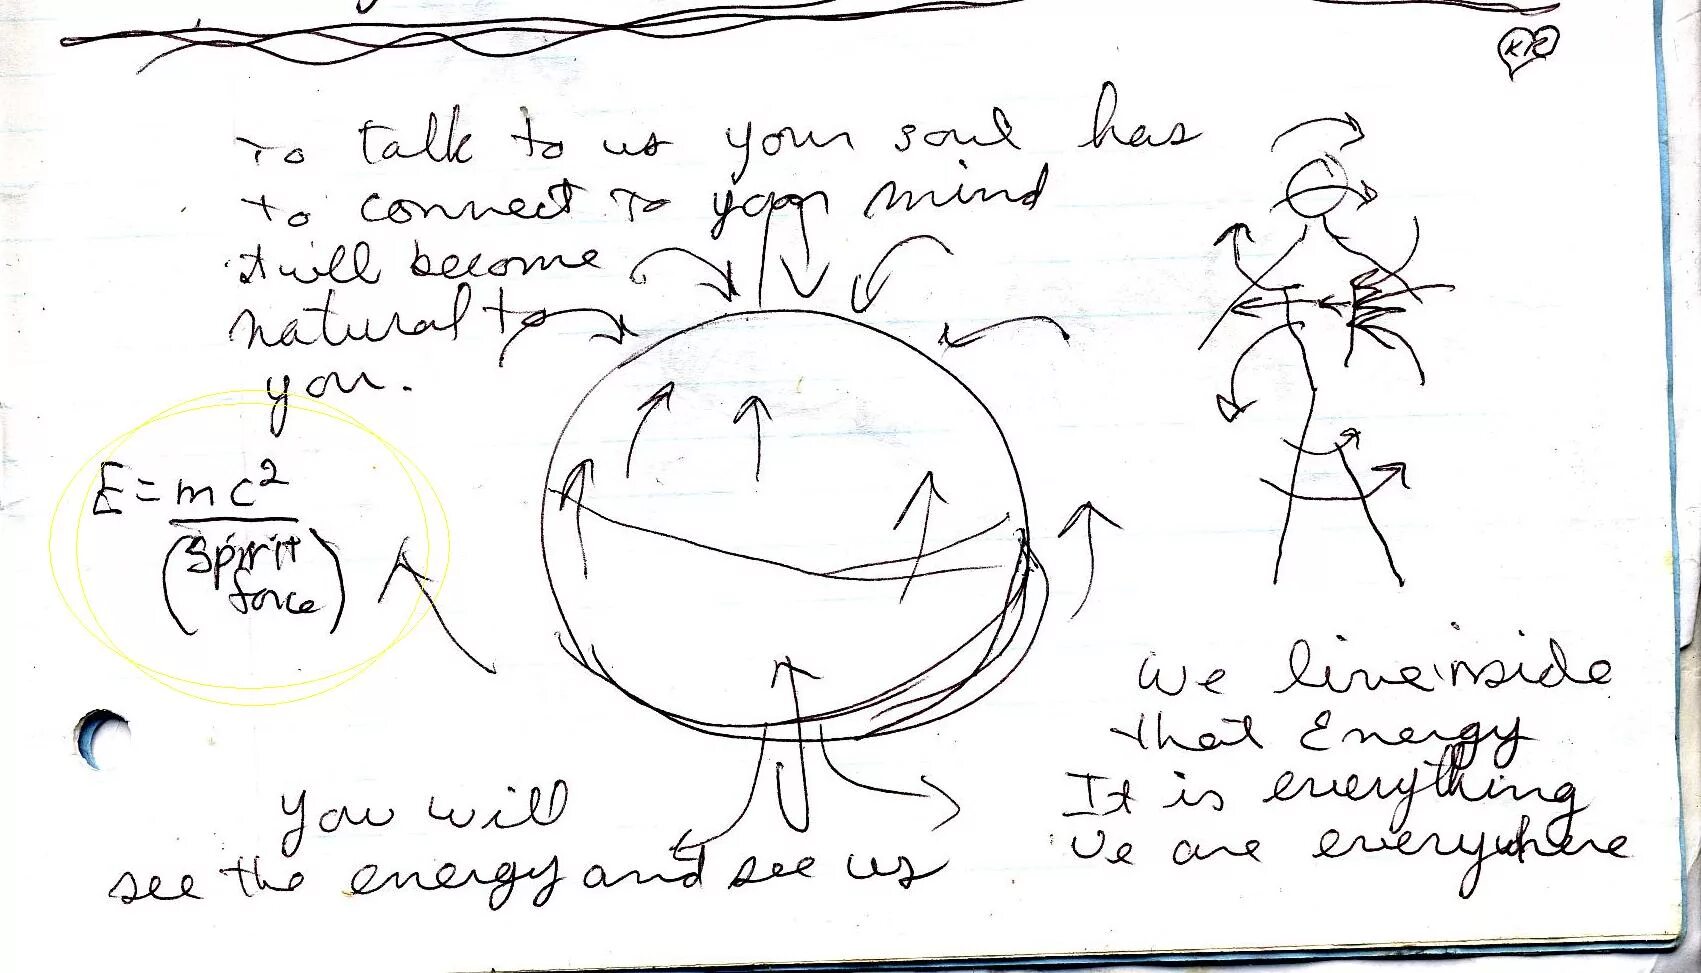 To talk to us your soul has
to connect to your mind
it will become
natural to
you.
E = mc²
(spirit
force)
we live inside
that Energy
It is everything
we are everywhere
you will
see the energy and see us